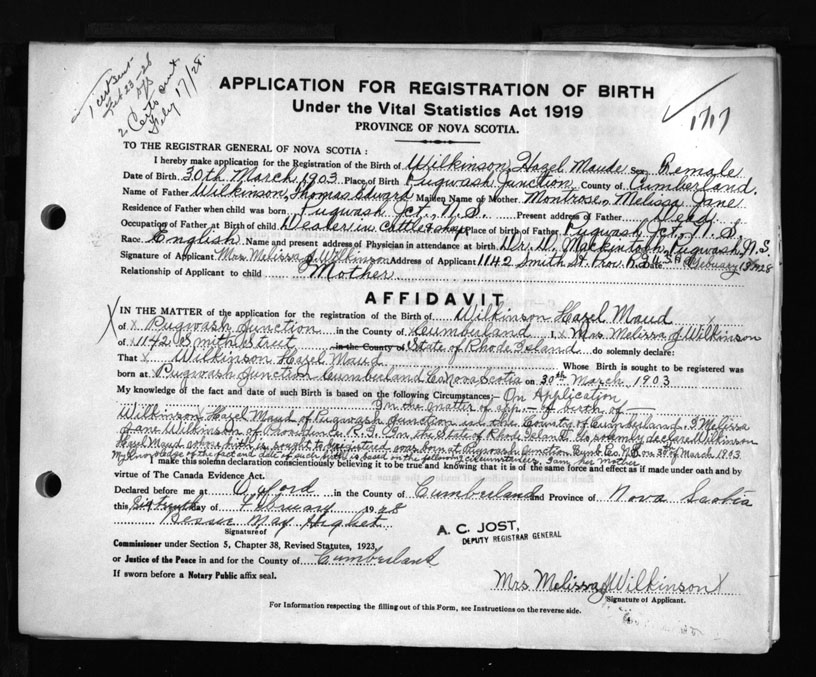 1 cert sent
Feb 20-28
2 Certs sent
July 17/28.
APPLICATION FOR REGISTRATION OF BIRTH
Under the Vital Statistics Act 1919
PROVINCE OF NOVA SCOTIA.
1717
TO THE REGISTRAR GENERAL OF NOVA SCOTIA :
I hereby make application for the Registration of the Birth of Wilkinson, Hazel Maude Sex Female
Date of Birth 30th March 1903 Place of Birth Pugwash Junction County of Cumberland.
Name of Father Wilkinson, Thomas Edward Maiden Name of Mother Montrose, Melissa Jane
Residence of Father when child was born Pugwash Jct., N.S. Present address of Father Dead
Occupation of Father at Birth of child Dealer in cattle & sheep Place of birth of Father Pugwash Jct., N.S.
Race English Name and present address of Physician in attendance at birth Dr. D. Mackintosh, Pugwash, N.S.
Signature of Applicant Mrs Melissa J. Wilkinson Address of Applicant 1142 Smith St. Prov. R.I. U.S.A. Date February 13 1928
Relationship of Applicant to child Mother
AFFIDAVIT
X IN THE MATTER of the application for the registration of the Birth of Wilkinson Hazel Maud
of X Pugwash Junction in the County of X Cumberland I, X Mrs Melissa J Wilkinson
of X 1142 Smith Street in the County of State of Rhode Island do solemnly declare:
That X Wilkinson Hazel Maud Whose Birth is sought to be registered was
born at Pugwash Junction Cumberland Co Nova Scotia on 30th March 1903
My knowledge of the fact and date of such Birth is based on the following Circumstances:- On Application
In the matter of app- of birth of
Wilkinson Hazel Maud of Pugwash Junction in the County of Cumberland. I Melissa
Jane Wilkinson of Providence R.I. In the State of Rhode Island do solemnly declare Wilkinson
Hazel Maud whose birth is sought to be registered was born at Pugwash Junction Cumb. Co. N.S. on 30th of March 1903
My knowledge of the fact and date of such birth is based on the following circumstances, I am her mother.
I make this solemn declaration conscientiously believing it to be true and knowing that it is of the same force and effect as if made under oath and by
virtue of The Canada Evidence Act.
Declared before me at Oxford in the County of Cumberland and Province of Nova Scotia
this Sixteenth day of February 1928
Bessie May Hughes
Signature of
A. C. JOST,
DEPUTY REGISTRAR GENERAL
Commissioner under Section 5, Chapter 38, Revised Statutes, 1923,
or Justice of the Peace in and for the County of Cumberland
If sworn before a Notary Public affix seal.
Mrs Melissa J Wilkinson X
Signature of Applicant.
For Information respecting the filling out of this Form, see Instructions on the reverse side.